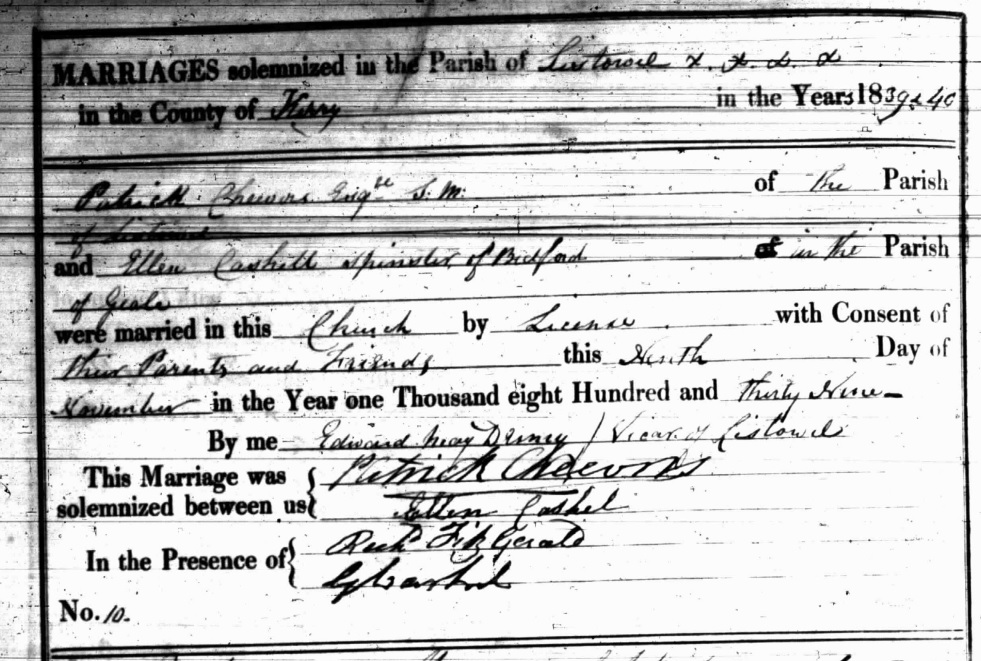 MARRIAGES solemnized in the Parish of Listowel
in the County of Kerry in the Years 1839 & 40
Patrick Cheevers Esqre S.M. of the Parish
of Listowel
and Ellen Cashell Spinster of Bedford in the Parish
of Geale
were married in this Church by License with Consent of
their Parents and Friends this Ninth Day of
November in the Year one Thousand eight Hundred and thirty Nine
By me Edward May Denny Vicar of Listowel
This Marriage was solemnized between us Patrick Cheevers
Ellen Cashel
In the Presence of Richd FitzGerald
No. 10.